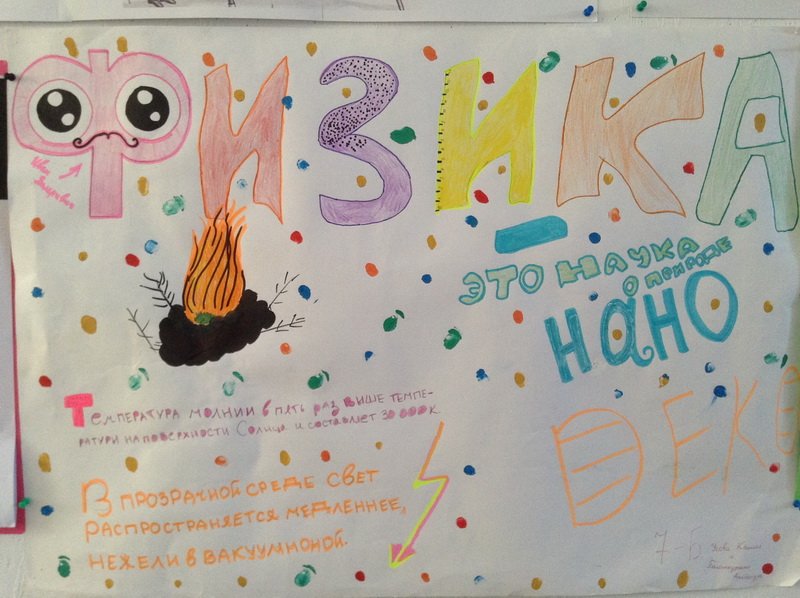 ФИЗИКА
- ЭТО НАУКА
О ПРИРОДЕ
НАНО
ДЕКЕ
Температура молнии в пять раз выше темпе-
ратури на поверхности Солнца и составляет 30 000 К.
В ПРОЗРАЧНОЙ СРЕДЕ СВЕТ
РАСПРОСТРАНЯЕТСЯ МЕДЛЕННЕЕ,
НЕЖЕЛИ В ВАКУУМНОНОЙ.
7-Б